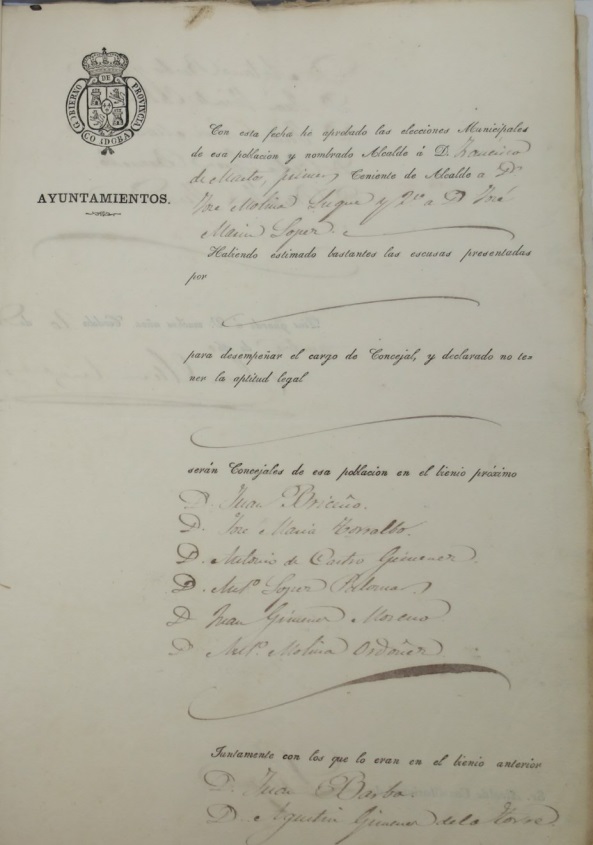 GOBIERNO DE PROVINCIA
CORDOBA
AYUNTAMIENTOS.
Con esta fecha he aprobado las elecciones Municipales
de esa poblacion y nombrado Alcalde á D. Francisco
de Martos, primer Teniente de Alcalde a D.
José Molina Luque y 2.º a D José
Maria Lopez.
Habiendo estimado bastantes las escusas presentadas
por
para desempeñar el cargo de Concejal, y declarado no te=
ner la aptitud legal
serán Concejales de esa poblacion en el bienio próximo
D. Juan Briceño.
D. José Maria Torralbo.
D. Antonio de Castro Gimenez.
D. Ant.º Lopez Palomar
D Juan Gimenez Moreno
D. Ant.º Molina Ordoñez
Juntamente con los que lo eran en el bienio anterior
D. Juan Barba
D. Agustin Gimenez de la Torre.